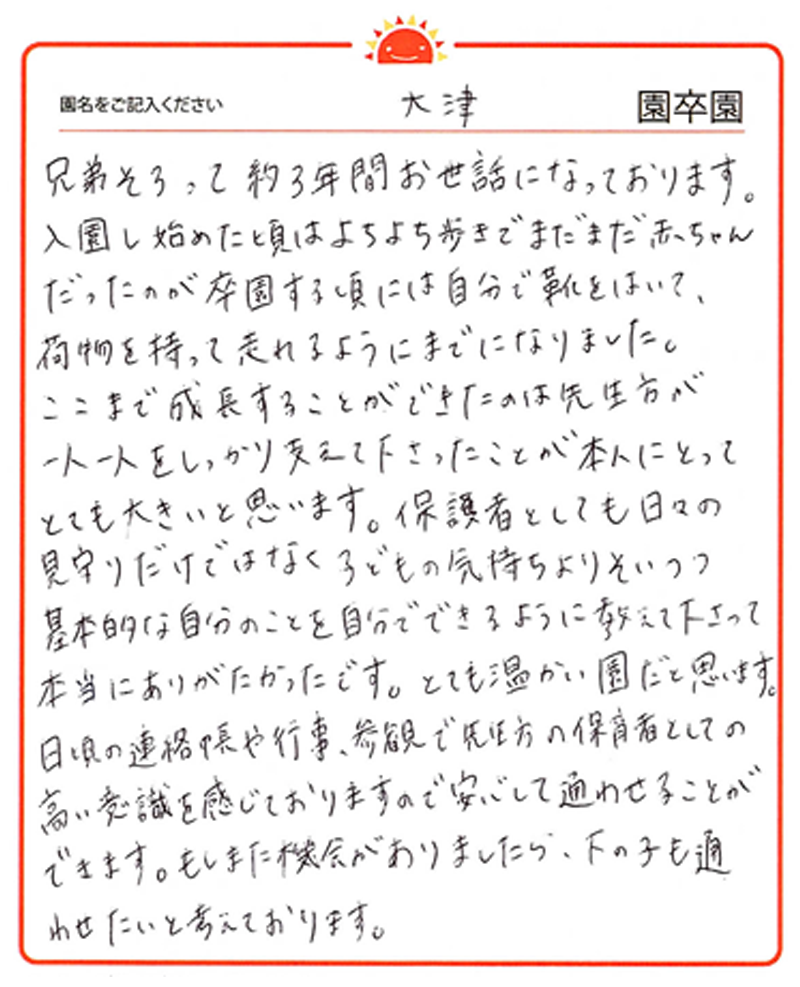 園名をご記入ください 大津 園卒園
兄弟そろって約3年間お世話になっております。
入園し始めた頃はよちよち歩きでまだまだ赤ちゃん
だったのが卒園する頃には自分で靴をはいて、
荷物を持って走れるようにまでになりました。
ここまで成長することができたのは先生方が
一人一人をしっかり支えて下さったことが本人にとって
とても大きいと思います。保護者としても日々の
見守りだけではなく子どもの気持ちよりそいつつ
基本的な自分のことを自分でできるように教えて下さって
本当にありがたかったです。とても温かい園だと思います。
日頃の連絡帳や行事、参観で先生方の保育者としての
高い意識を感じておりますので安心して通わせることが
できます。もしまた機会がありましたら、下の子も通
わせたいと考えております。